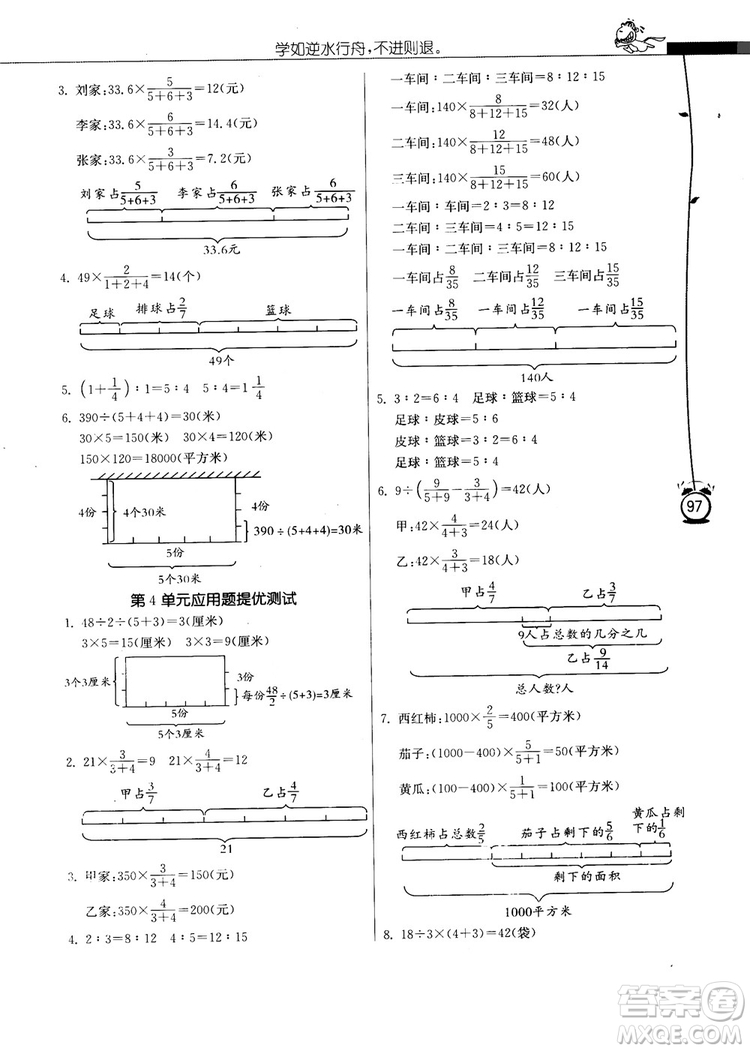 学如逆水行舟,不进则退。
3. 刘家:33.6×5/(5+6+3)=12(元)
李家:33.6×6/(5+6+3)=14.4(元)
张家:33.6×3/(5+6+3)=7.2(元)
刘家占5/(5+6+3) 李家占6/(5+6+3) 张家占3/(5+6+3)
33.6元
4. 49×2/(1+2+4)=14(个)
足球 排球占2/7 篮球
49个
5. (1+1/4)∶1=5∶4 5∶4=1 1/4
6. 390÷(5+4+4)=30(米)
30×5=150(米) 30×4=120(米)
150×120=18000(平方米)
4份 4个30米 4份
390÷(5+4+4)=30米
5份
5个30米
第 4 单元应用题提优测试
1. 48÷2÷(5+3)=3(厘米)
3×5=15(厘米) 3×3=9(厘米)
3个3厘米 3份
每份48/2÷(5+3)=3厘米
5份
5个3厘米
2. 21×3/(3+4)=9 21×4/(3+4)=12
甲占3/7 乙占4/7
21
3. 甲家:350×3/(3+4)=150(元)
乙家:350×4/(3+4)=200(元)
4. 2∶3=8∶12 4∶5=12∶15
一车间∶二车间∶三车间=8∶12∶15
一车间:140×8/(8+12+15)=32(人)
二车间:140×12/(8+12+15)=48(人)
三车间:140×15/(8+12+15)=60(人)
一车间∶车间=2∶3=8∶12
二车间∶三车间=4∶5=12∶15
一车间∶二车间∶三车间=8∶12∶15
一车间占8/35 二车间占12/35 三车间占15/35
一车间占8/35 一车间占12/35 一车间占15/35
140人
5. 3∶2=6∶4 足球∶篮球=5∶4
足球∶皮球=5∶6
皮球∶篮球=3∶2=6∶4
足球∶篮球=5∶4
6. 9÷(9/(5+9)-3/(3+4))=42(人)
甲:42×4/(3+4)=24(人)
乙:42×3/(3+4)=18(人)
甲占4/7 乙占3/7
9人占总数的几分之几
乙占9/14
总人数?人
7. 西红柿:1000×2/5=400(平方米)
茄子:(1000-400)×5/(5+1)=50(平方米)
黄瓜:(100-400)×1/(5+1)=100(平方米)
西红柿占总数2/5 茄子占剩下的5/6 黄瓜占剩下的1/6
剩下的面积
1000平方米
8. 18÷3×(4+3)=42(袋)
97
答案圈
MXQE.COM